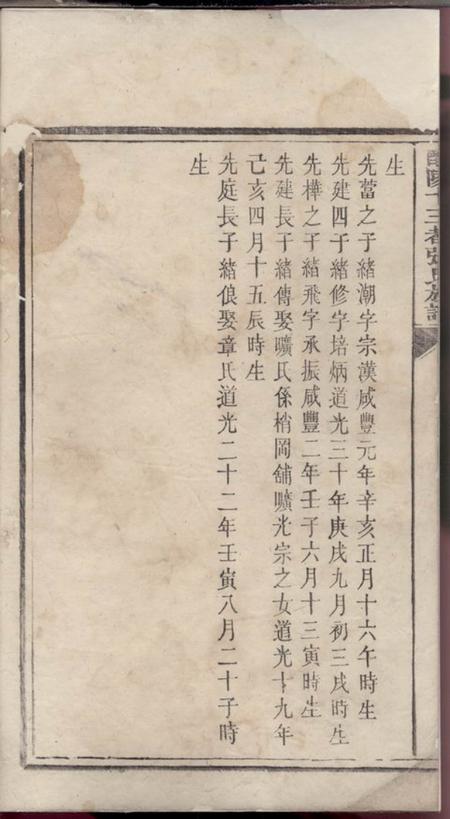 十三都張氏族譜
生
先蕾之子緒潮字宗漢咸豐元年辛亥正月十六午時生
先建四子緒修字培炳道光三十年庚戌九月初三戌時生
先樺之子緒飛字承振咸豐二年壬子六月十三寅時生
先建長子緒傳娶曠氏係梢岡舖曠光宗之女道光十九年
己亥四月十五辰時生
先庭長子緒俍娶章氏道光二十二年壬寅八月二十子時
生